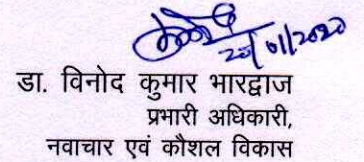 20/01/2020
डा. विनोद कुमार भारद्वाज
प्रभारी अधिकारी,
नवाचार एवं कौशल विकास